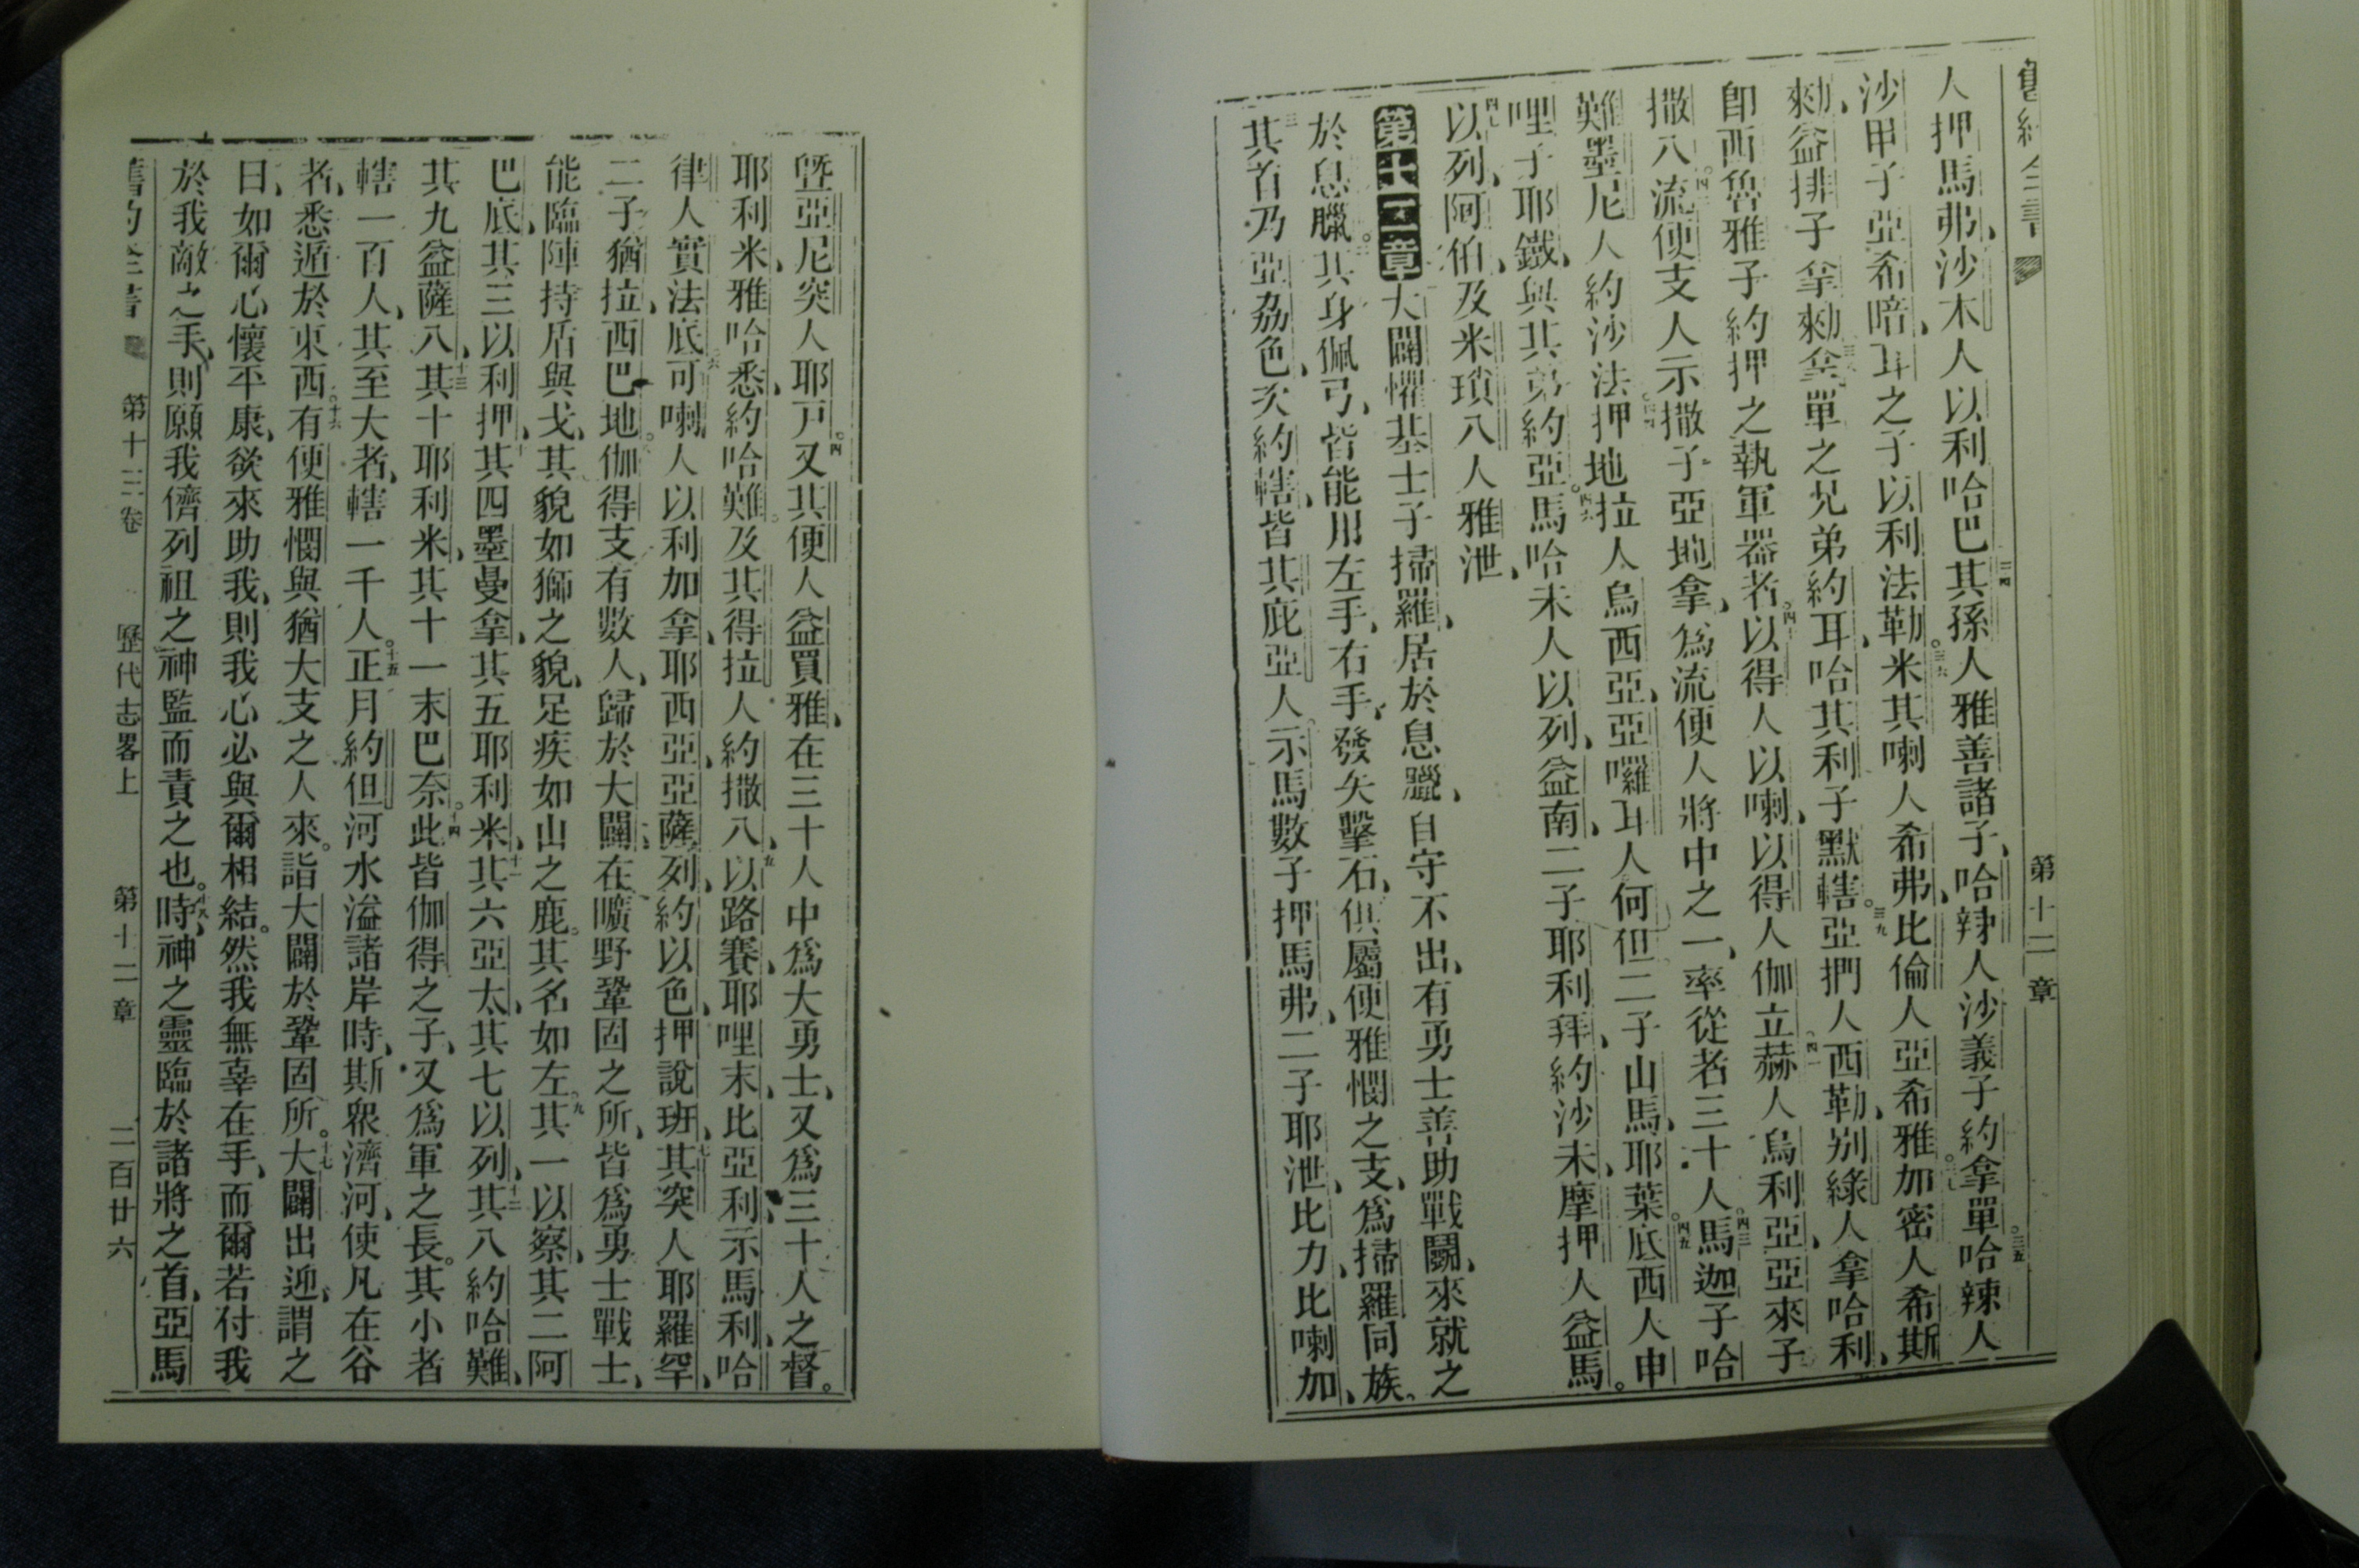 第十二章
人押馬弗、沙木人以利哈巴、其孫人雅善諸子、哈辣人沙義子約拿單、哈辣人
沙甲子亞希暗、耳之子以利法勒、米其喇人希弗、比倫人亞希雅、加密人希斯
卽西魯雅子約押之執軍器者、以得人以喇、以得人伽立、赫人烏利亞、亞來子
撒八、流便支人示撒子亞地拿、為流便人將中之一、率從者三十人、馬迦子哈
難、墨尼人約沙法、押地拉人烏西亞、亞囉耳人何但二子山馬、耶葉、底西人申
哩子耶鐵、與其弟約亞、馬哈未人以列、益南二子耶利拜、約沙未、摩押人益馬。
以列、阿伯、及米瑣八人雅泄、
第十二章大闢懼基士子掃羅、居於息臘、自守不出、有勇士善助戰鬭、來就之
於息臘。其身佩弓、皆能用左手、右手、發矢擊石、俱屬便雅憫之支、為掃羅同族。
其首乃亞荔色、次約轄、皆其庇亞人示馬數子、押馬弗二子耶泄、比力、比喇加、
曁亞尼突人耶戸、又其便人益買雅、在三十人中為大勇士、又為三十人之督。
耶利米、雅哈悉、約哈難、及其得拉人約撒八、以路賽、耶哩末、比亞利、示馬利、哈
律人實法底、可喇人以利加拿、耶西亞、亞薩列、約以色、押說班、其突人耶羅罕、
二子猶拉、西巴地、伽得支有數人、歸於大闢、在曠野鞏固之所、皆為勇士戰士、
能臨陣持盾與戈、其貌如獅之貌、足疾如山之鹿。其名如左、其一以察、其二阿
巴底、其三以利押、其四墨曼拿、其五耶利米、其六亞太、其七以列、其八約哈難、
其九益薩八、其十耶利米、其十一末巴奈。此皆伽得之子、又為軍之長。其小者
轄一百人、其至大者、轄一千人。正月約但河水溢諸岸時、斯衆濟河、使凡在谷
者、悉遁於東西。有便雅憫與猶大支之人來。詣大闢於鞏固所。大闢出迎、謂之
曰、如爾心懷平康、欲來助我、則我心必與爾相結。然我無辜在手、而爾若付我
於我敵之手、則願我儕列祖之神監而責之也。時神之靈臨於諸將之首、亞馬
第十三卷 歷代志畧上 第十二章 二百廿六